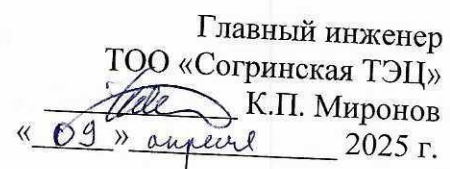 Главный инженер
ТОО «Согринская ТЭЦ»
К.П. Миронов
«09» апреля 2025 г.